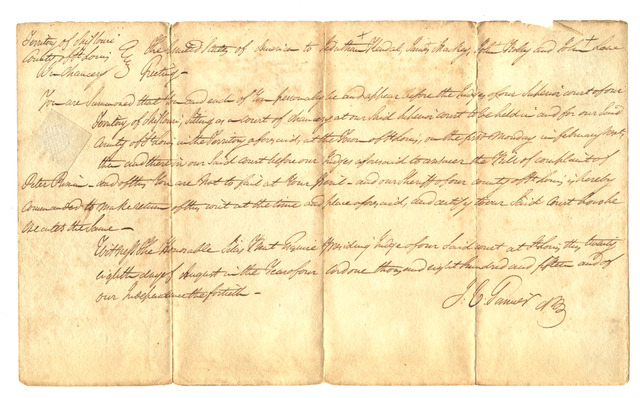 Territory of Missouri The United States of America to Jonathan Kendal, James Mackey, John Troly and John Lane
County of St Louis
In Chancery Greeting –
You are Summoned that You and each of You personally be and appear before the Judges of our Superior Court of our
Territory of Missouri, Sitting as a Court of Chancery at our Said Superior Court to be held in and for our Said
County of St Louis in the Territory aforesaid, at the Town of St Louis, on the first Monday in february next,
then and there in our Said Court before our Judges aforesaid to answer the Bill of complaint of
Peter – and of this You are Not to fail at Your Peril – and our Sheriff of our County of St Louis is hereby
Commanded to make return of this writ at the time and place aforesaid, and certify to our Said Court how he
executes the Same –
Witness the Honorable Silas Bent Esquire Presiding Judge of our Said Court at St Louis, the twenty
eighth day of August in the Year of our Lord one thousand eight hundred and fifteen and of
our Independence the fortieth –